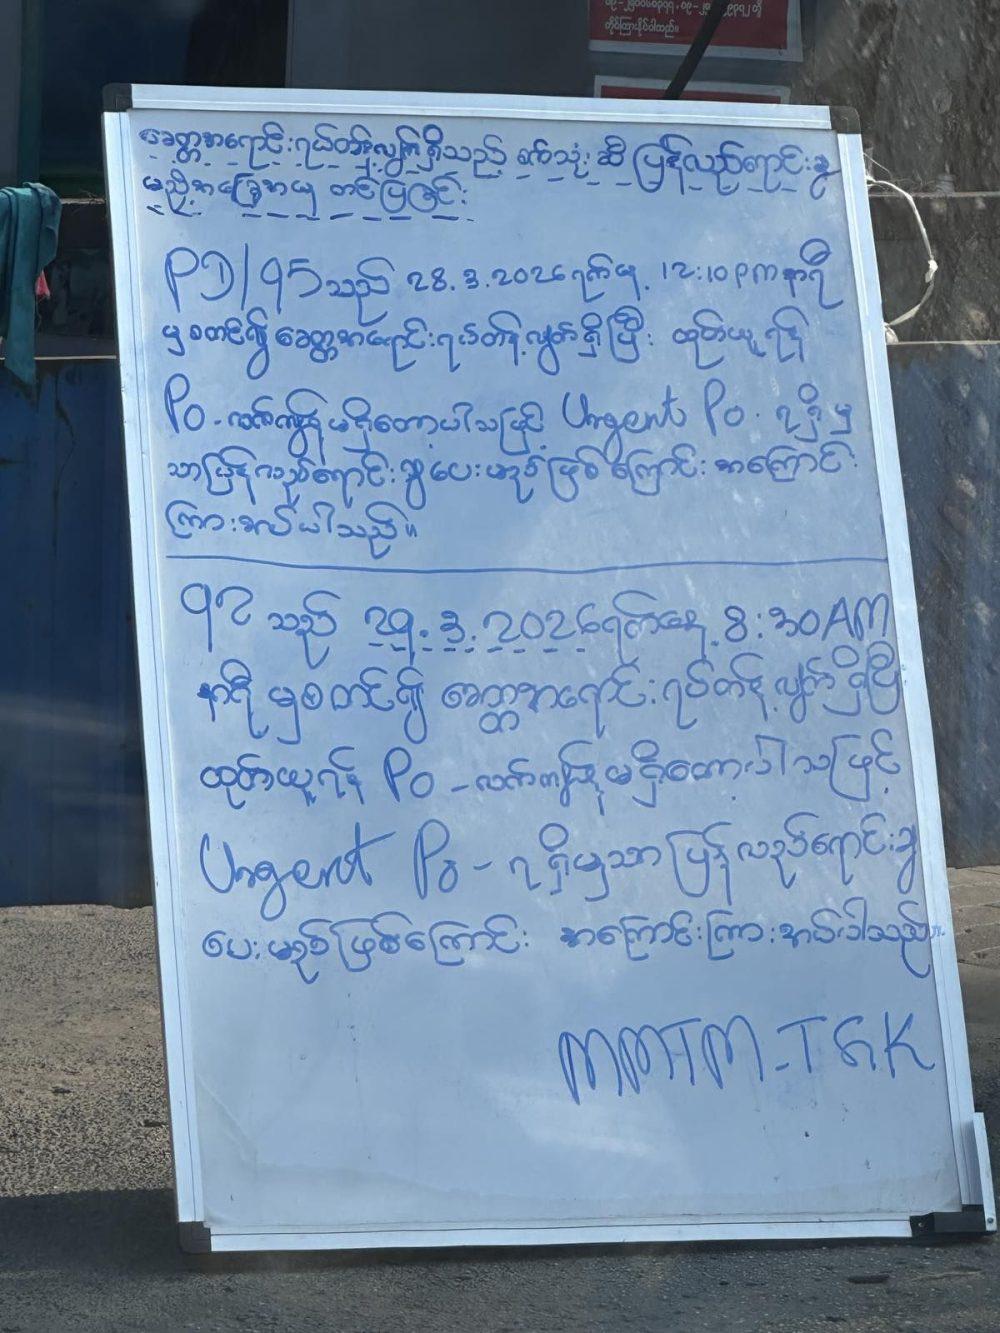 ၀၉-၂၅၀၀၆၈၃၇၇ , ၀၉-
တိုင်ကြားနိုင်ပါသည်။
ခေတ္တအရောင်းရပ်တန့်လျှက်ရှိသည့် စက်သုံးဆီ ပြန်လည်ရောင်းချ
မည့်အခြေအနေ တင်ပြခြင်း
PD/95 သည် 28.3.2026 ရက်နေ့ 12:10 PM နာရီ
မှစတင်၍ ခေတ္တအရောင်းရပ်တန့်လျှက်ရှိပြီး ထုတ်ယူရန်
Po - လက်ကျန်မရှိတော့ပါသဖြင့် Urgent Po - ရရှိမှ
သာပြန်လည်ရောင်းချပေးမည်ဖြစ်ကြောင်း အကြောင်း
ကြားအပ်ပါသည်။
92 သည် 29.3.2026 ရက်နေ့ 8:30AM
နာရီ မှစတင်၍ ခေတ္တအရောင်းရပ်တန့်လျှက်ရှိပြီး
ထုတ်ယူရန် Po - လက်ကျန်မရှိတော့ပါသဖြင့်
Urgent Po - ရရှိမှသာ ပြန်လည်ရောင်းချ
ပေးမည်ဖြစ်ကြောင်း အကြောင်းကြားအပ်ပါသည်။
MMTM-TGK